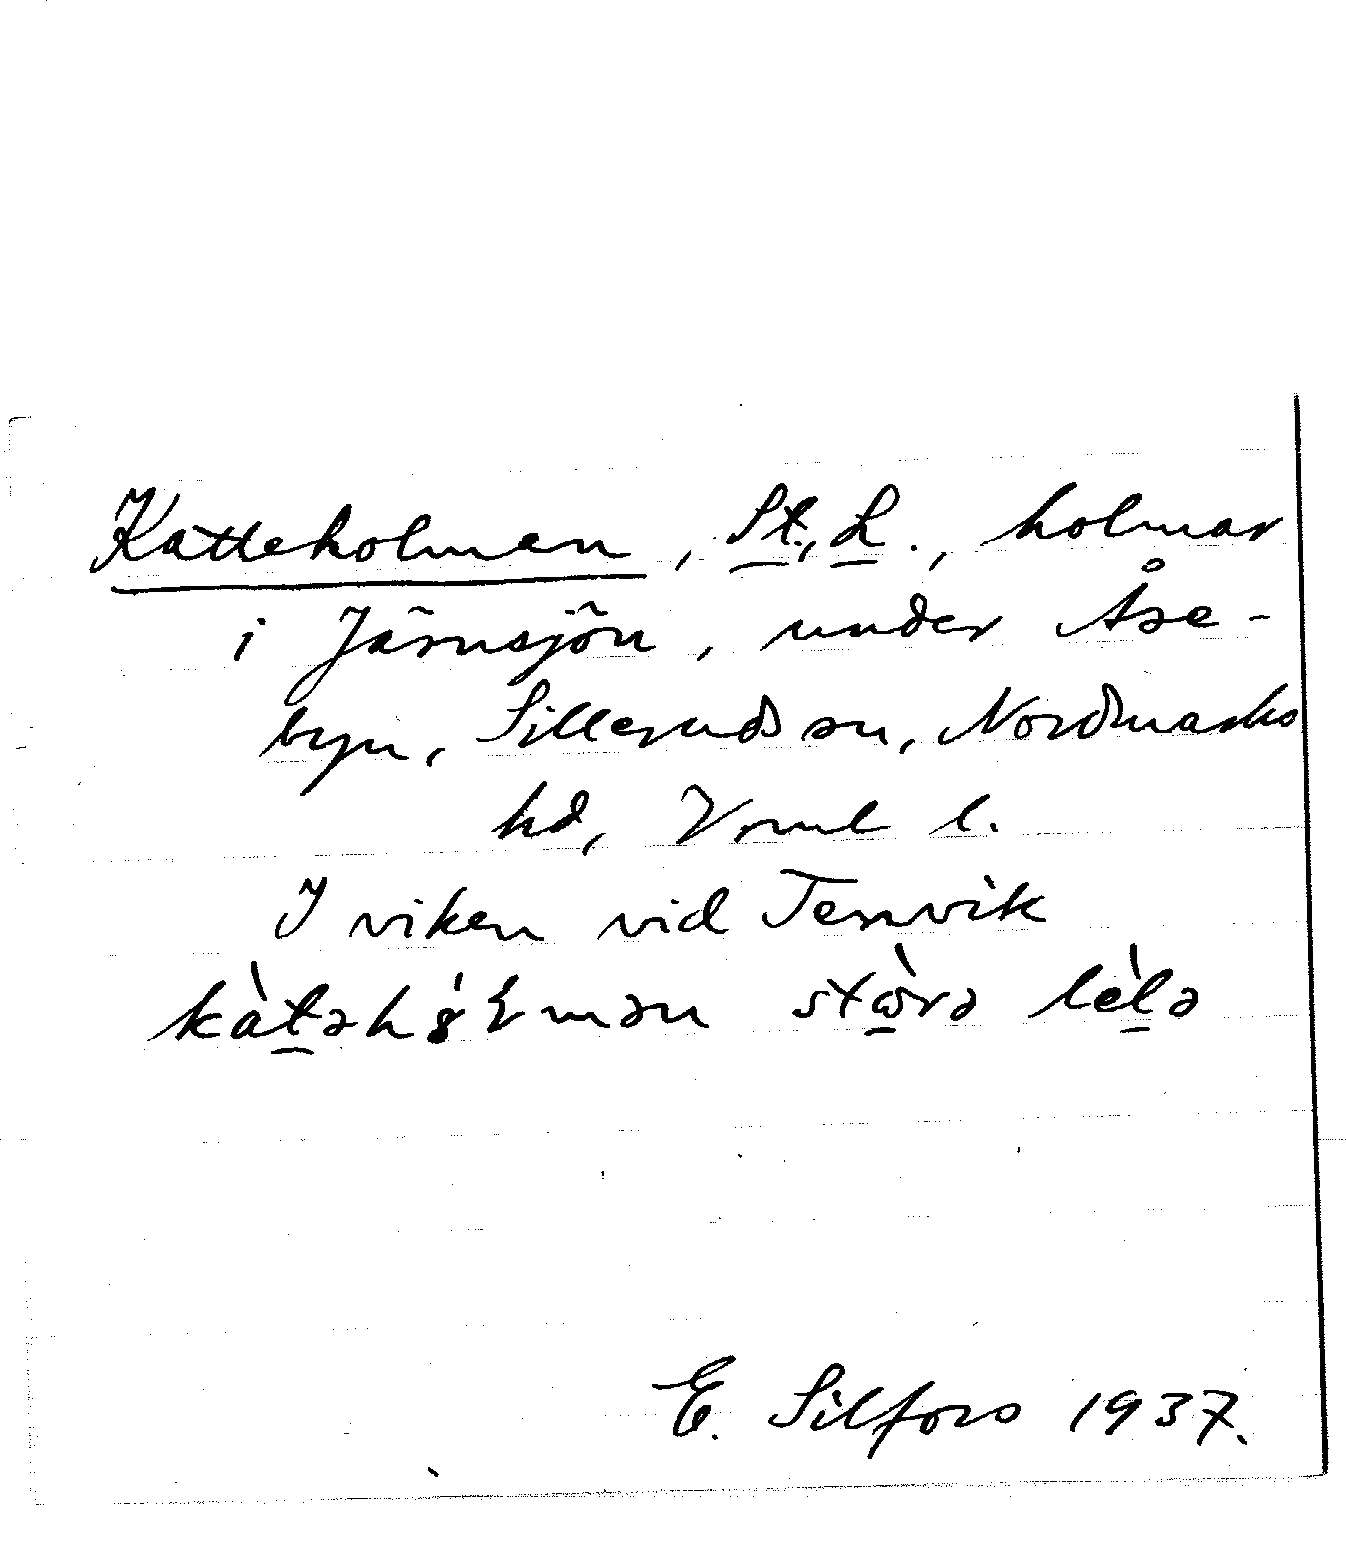 Katteholmen, St., L., holmar
i Järnsjön, under Åse-
byn, Silleruds sn, Nordmarks
hd, Vrml l.
I viken vid Tenvik
stòra lèla
E. Silfors 1937.